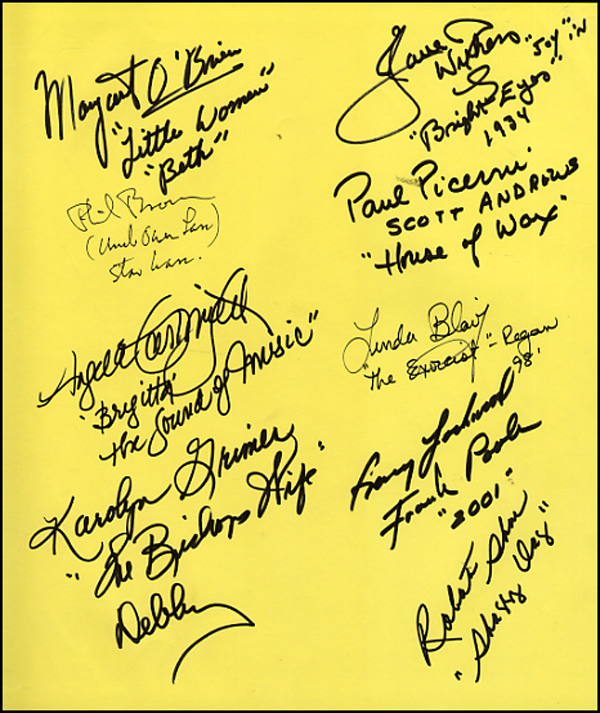 Margaret O'Brien
"Little Women"
"Beth"
Phil Brown
(Uncle Owen Lars)
Star Wars.
Angela Cartwright
"Brigitta"
the Sound of Music"
Karolyn Grimes
"The Bishops Wife"
Debby
Jane Withers "Joy" in
"Bright Eyes"
1934
Paul Picerni
SCOTT ANDREWS
"House of Wax"
Linda Blair
"The Exorcist" - Regan
98'
Gary Lockwood
Frank Poole
"2001"
Robert
"Shaggy Dog